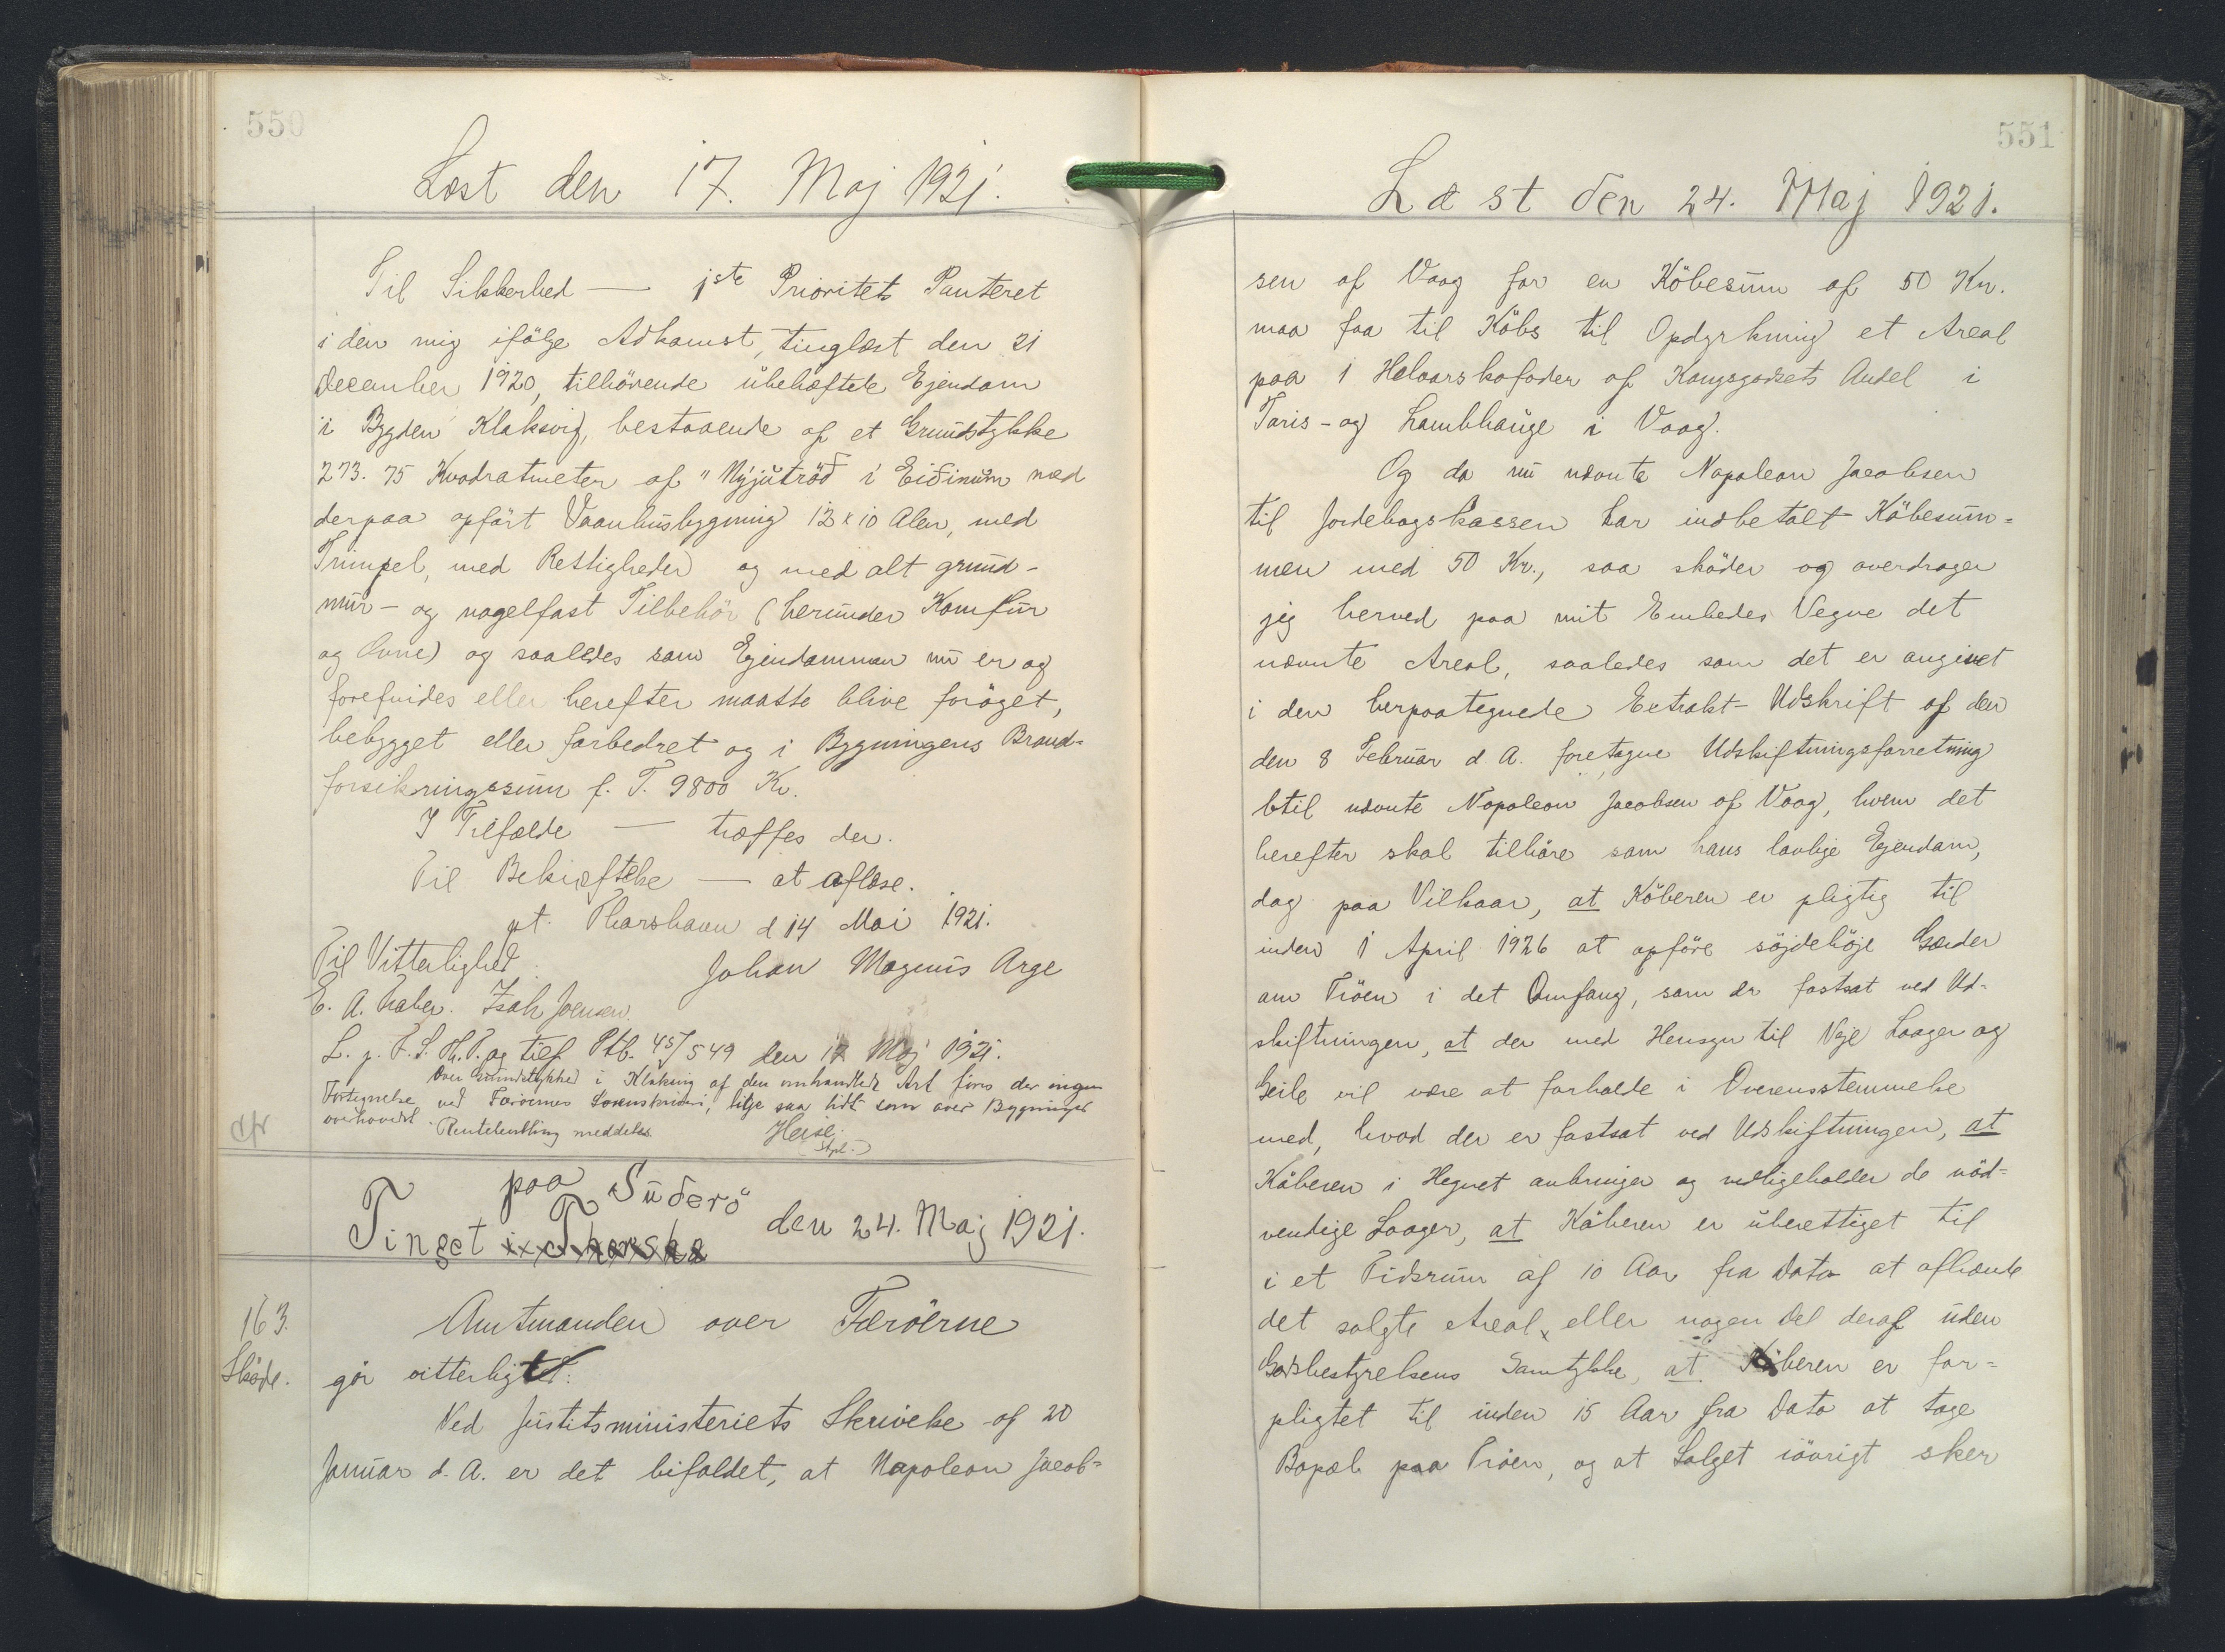 550
Læst den 17. Maj 1921.
Til Sikkerhed — 1ste Prioritets Panteret
i den mig ifölge Adkomst, tinglæst den 21
December 1920, tilhörende übehæftede Ejendom
i Bygden Klaksvig, bestaaende af et Grundstykke
273.75 Kvadratmeter af "Nýjutröð i Eiðinum med
derpaa opfört Vaanhusbygning 12 x 10 Alen, med
Trimpel, med Rettigheder og med alt grund-
mur- og nagelfast Tilbehör (herunder Komfur
og Ovne) og saaledes som Ejendommen nu er og
forefindes eller herefter maatte blive foröget,
bebygget eller forbedret og i Bygningens Brand-
forsikringssum f. T. 9800 Kr.
I Tilfælde — træffes der.
Til Bekræftelse — at aflæse.
pt. Thorshavn d 14 Mai 1921.
Til Vitterlighed Johan Magnus Arge
E. A. Isak Joensen.
L. p. F. S. Th. T. og tilf. Ptb. 45/549 den 17 Maj 1921.
Over Grundstykker i Klaksvig af den omhandlede Art föres der ingen
Fortegnelse ved Færöernes Sorenskriveri, lige saa lidt som over Bygninger
overhovedet.
cfr
paa Süderö
Tinget i Thorsha den 24. Maj 1921.
163. Amtmanden over Færöerne
Sköde. gör vitterligt:
Ved Justitsministeriets Skrivelse af 20
Januar d. A. er det bifaldet, at Napoleon Jacob-
551
Læst den 24. Maj 1921.
sen af Vaag for en Köbesum af 50 Kr.
maa faa til Köbs til Opdyrkning et Areal
paa 1 Helaarskofoder af Kongsgodsets Andel i
Toris- og Lambhauge i Vaag.
Og da nu nævnte Napoleon Jacobsen
til Jordebogskassen har indbetalt Köbesum-
men med 50 Kr., saa sköder og overdrager
jeg herved paa mit Embedes Vegne det
nævnte Areal, saaledes som det er angivet
i den herpaategnede Extrakt-Udskrift af den
den 8 Februar d. A. foretagne Udskiftningsforretning
til nævnte Napoleon Jacobsen af Vaag, hvem det
herefter skal tilhöre som hans lovlige Ejendom,
dog paa Vilkaar, at Köberen er pligtig til
inden 1 April 1926 at opföre söjdehöje Gærder
om Tröen i det Omfang, som er fastsat ved Ud-
skiftningen, at der med Hensyn til Veje Laager og
Geile vil være at forholde i Overensstemmelse
med, hvad der er fastsat ved Udskiftningen, at
Köberen i Hegnet anbringer og vedligeholder de nöd-
vendige Laager, at Köberen er überettiget til
i et Tidsrum af 10 Aar fra Dato at afhænde
det solgte Areal eller nogen Del deraf uden
Godsbestyrelsens Samtykke, at Köberen er for-
pligtet til inden 15 Aar fra Dato at tage
Bopæl paa Tröen, og at Salget iövrigt sker